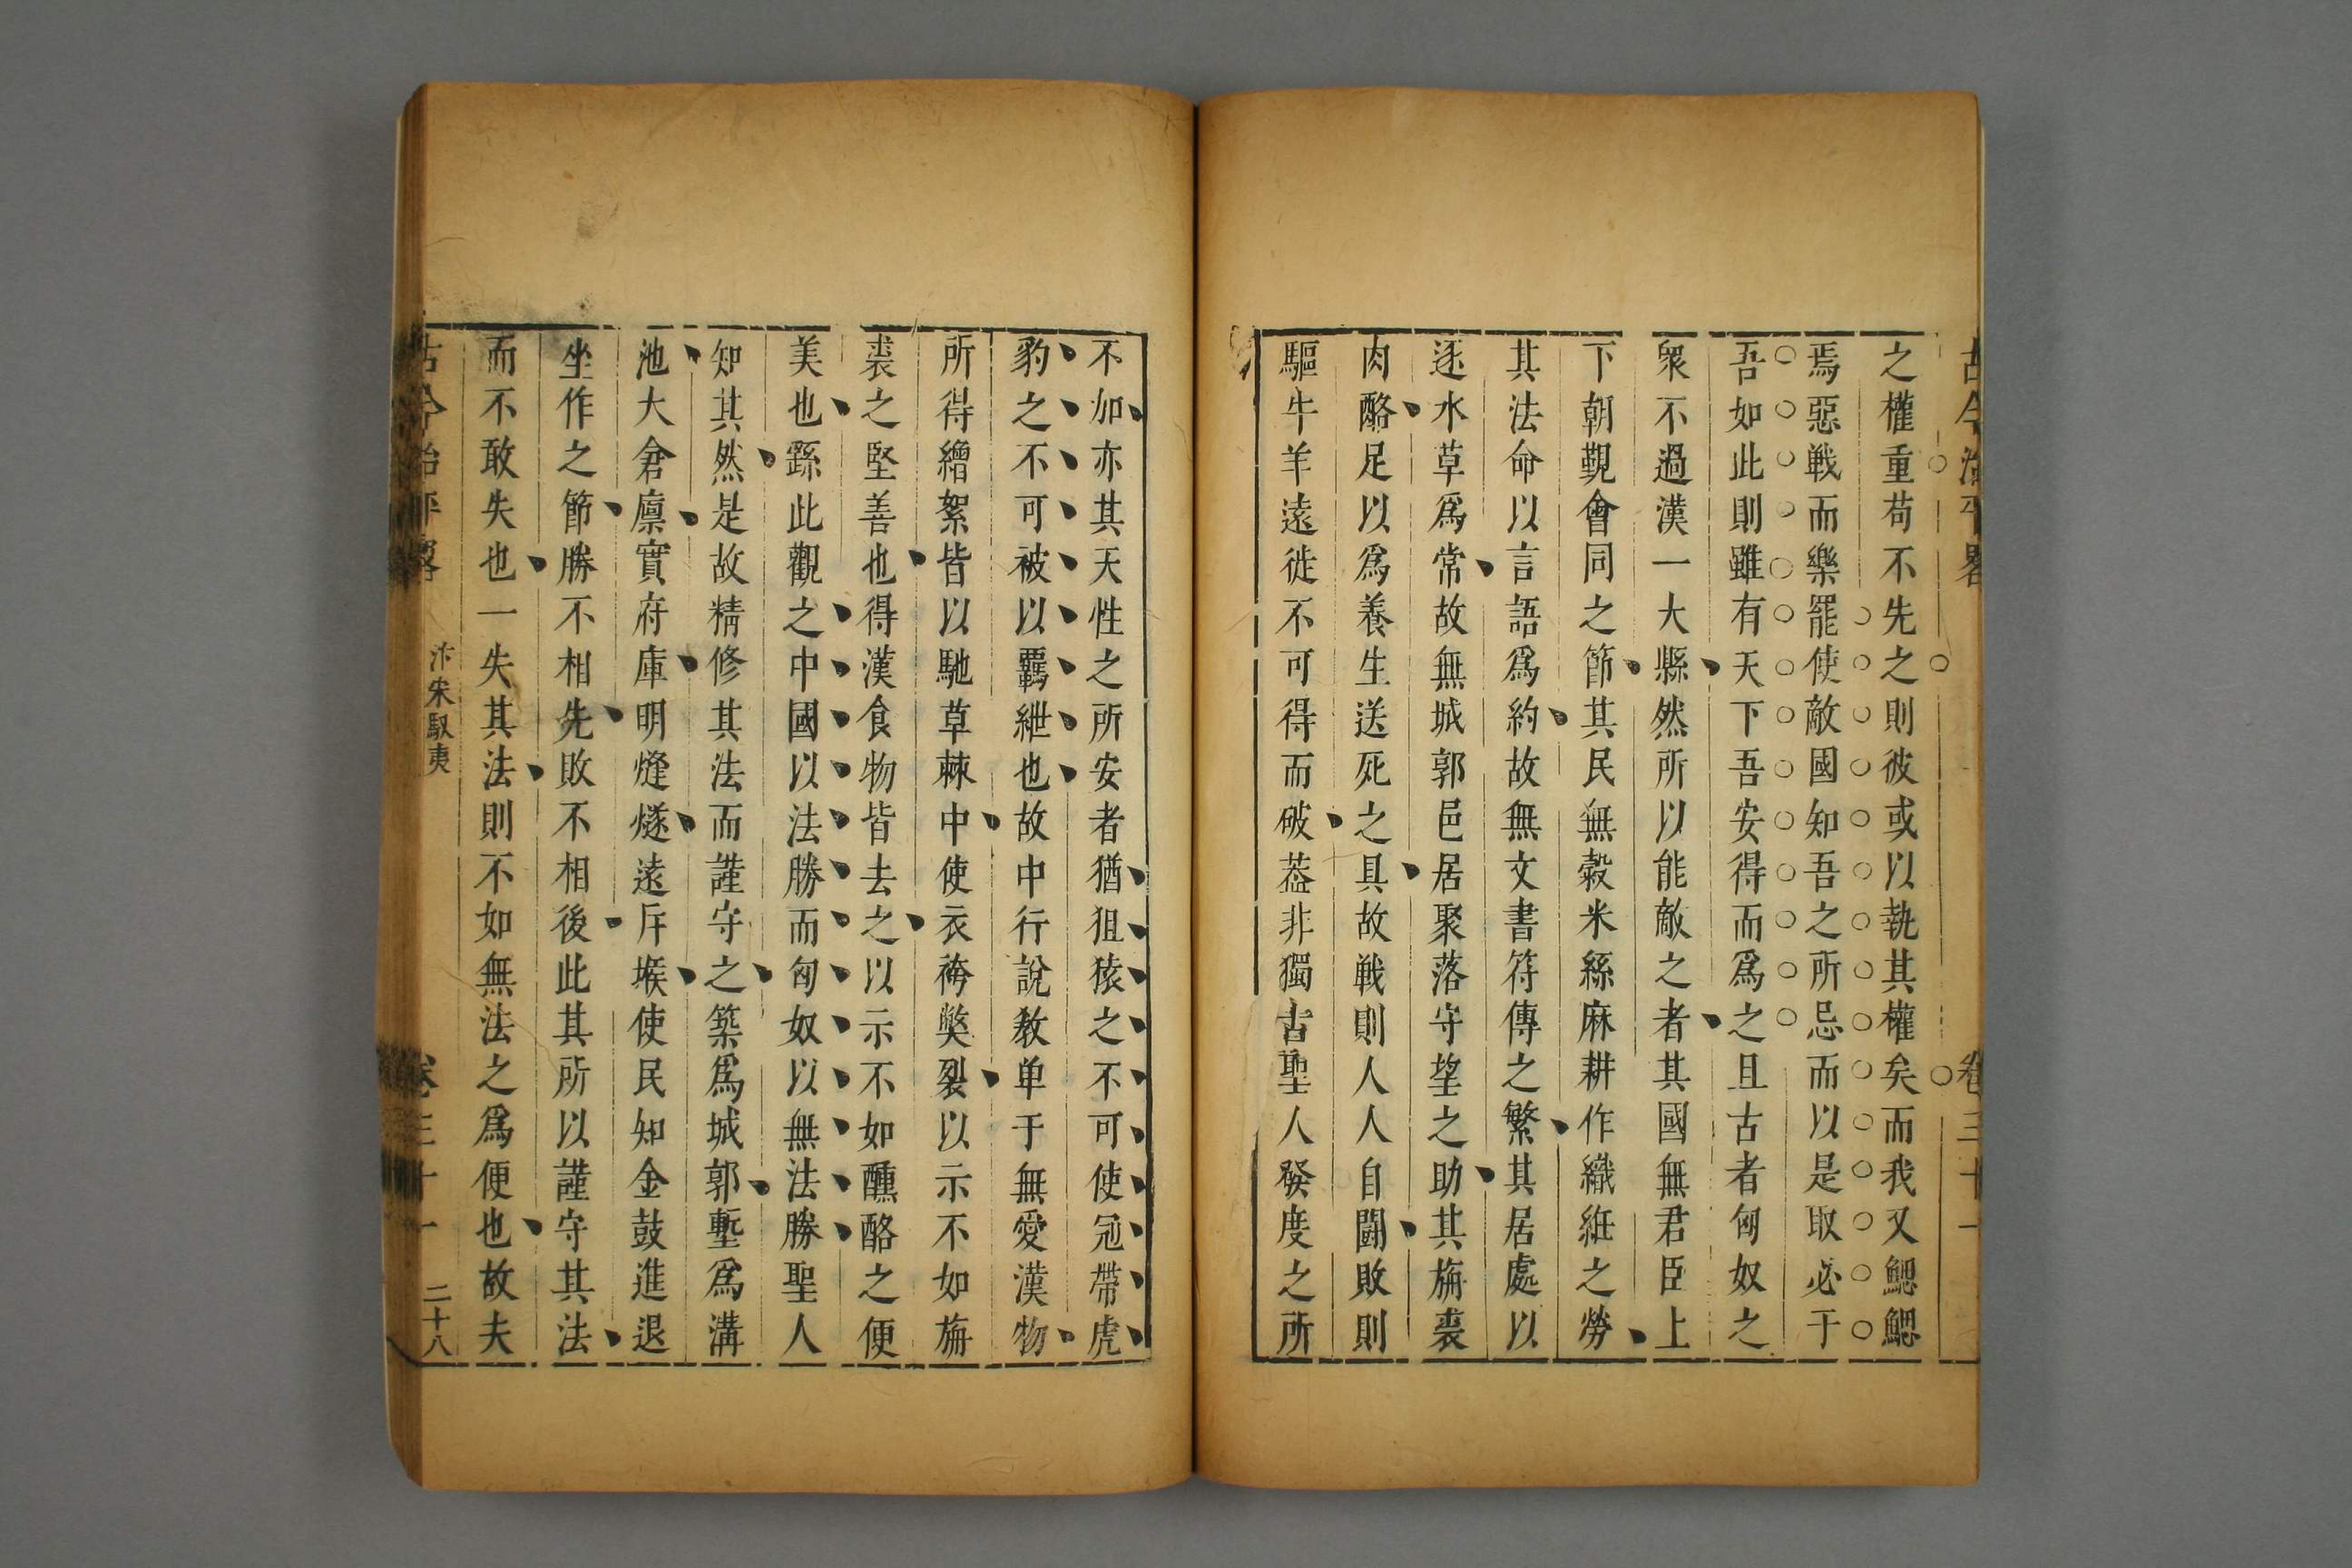 古今治平畧 卷三十一
之權重苟不先之則彼或以執其權矣而我又鰓鰓
焉惡戰而樂罷使敵國知吾之所忌而以是取必于
吾如此則雖有天下吾安得而爲之且古者匈奴之
衆不過漢一大縣然所以能敵之者其國無君臣上
下朝覲會同之節其民無穀米絲麻耕作織紝之勞
其法命以言語爲約故無文書符傳之繁其居處以
逐水草爲常故無城郭邑居聚落守望之助其旃裘
肉酪足以爲養生送死之具故戰則人人自鬪敗則
驅牛羊遠徙不可得而破葢非獨古聖人發度之所
不加亦其天性之所安者猶狙猿之不可使冠帶虎
豹之不可被以羈紲也故中行說教单于無愛漢物
所得繒絮皆以馳草棘中使衣袴獘裂以示不如旃
裘之堅善也得漢食物皆去之以示不如醺酪之便
美也繇此觀之中國以法勝而匈奴以無法勝聖人
知其然是故精修其法而謹守之築爲城郭塹爲溝
池大倉廪實府庫明烽燧遠斥堠使民知金鼓進退
坐作之節勝不相先敗不相後此其所以謹守其法
而不敢失也一失其法則不如無法之爲便也故夫
古今治平畧 汴宋馭夷 卷三十一 二十八